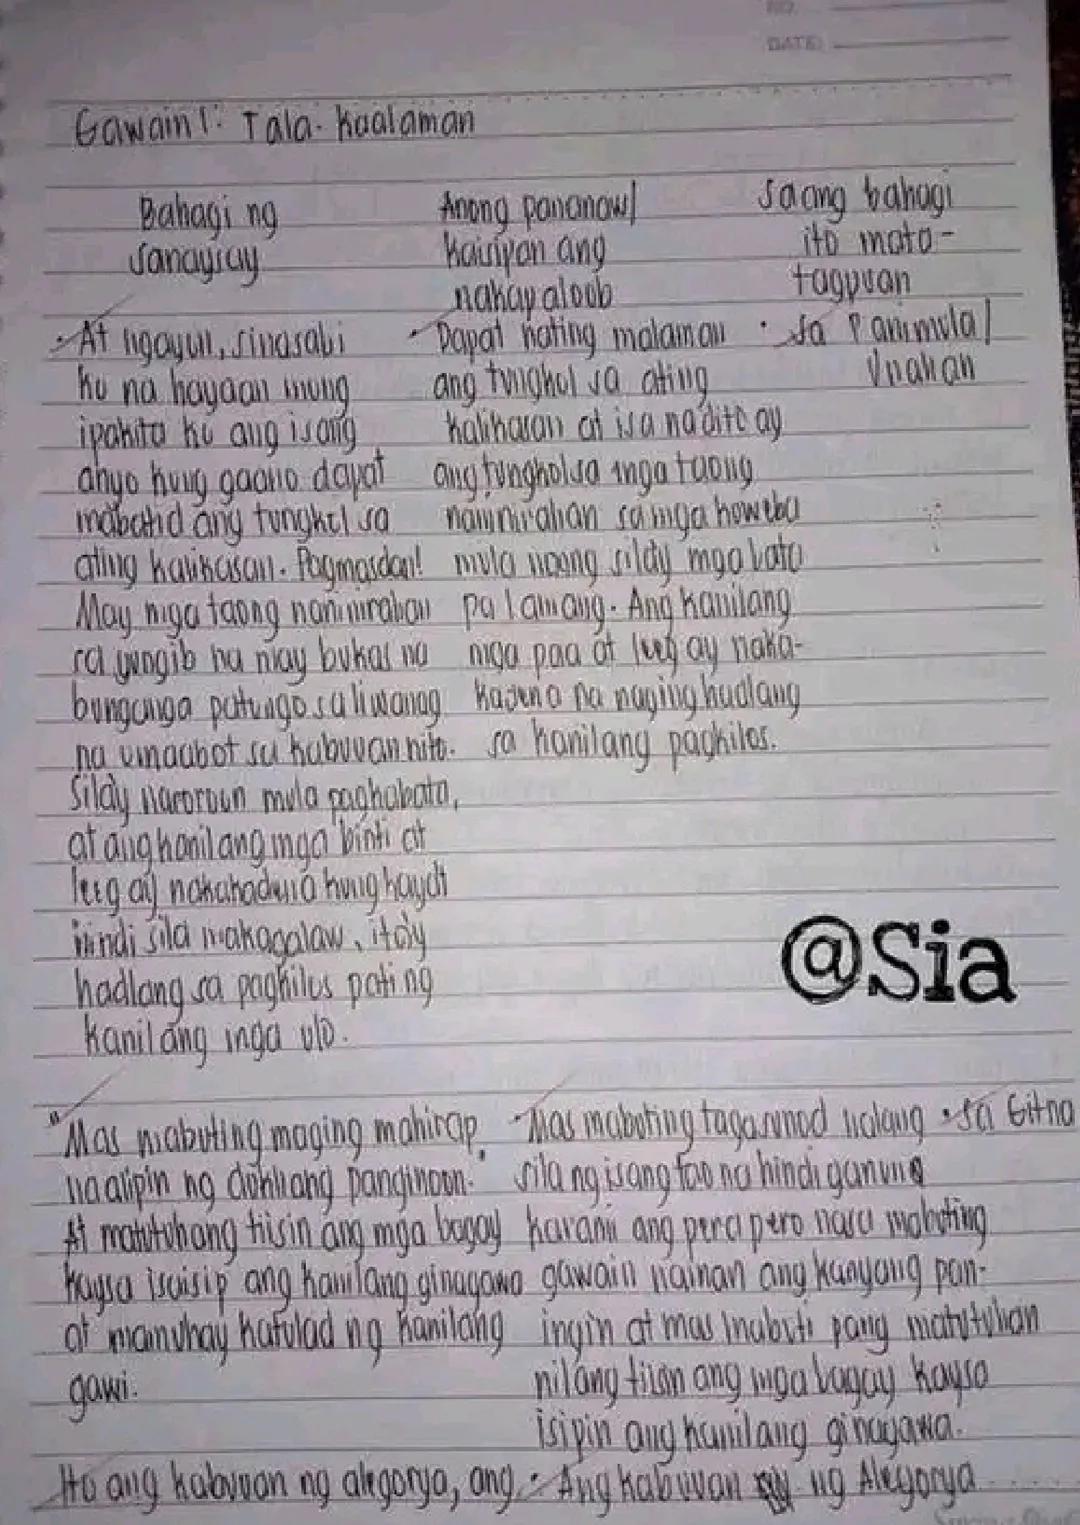 NO.
DATE:
Gawain 1: Tala-kaalaman
Bahagi ng
sanaysay
Anong pananaw/
kaisipan ang
nakapaloob
Saang bahagi
ito mata-
tagpuan
· At ngayon, sinasabi
ko na hayaan mong
ipakita ko ang isang
anyo kung gaano dapat
mabatid ang tungkol sa
ating kalikasan. Pagmasdan!
May mga taong naninirahan
sa yungib na may bukas na
bunganga patungo sa liwanag
na umaabot sa kabuuan nito.
Sila'y naroroon mula pagkabata,
at ang kanilang mga binti at
leeg ay nakakadena kung kaya't
hindi sila makagalaw, ito'y
hadlang sa pagkilos pati ng
kanilang mga ulo.
· Dapat nating malaman
ang tungkol sa ating
kalikasan at isa na dito ay
ang tungkol sa mga taong
naninirahan sa mga kweba
mula noong sila'y mga bata
pa lamang. Ang kanilang
mga paa at leeg ay naka-
kadena na naging hadlang
sa kanilang pagkilos.
· Sa Panimula/
Unahan
@Sia
"Mas mabuting maging mahirap,
na alipin ng dukhang panginoon.
At matutuhang tiisin ang mga bagay
kaysa isaisip ang kanilang ginagawa
at mamuhay katulad ng kanilang
gawi.
· Mas mabuting tagasunod nalang
sila ng isang tao na hindi ganung
karami ang pera pero nasa mabuting
gawain naman ang kanyang pan-
ingin at mas mabuti pang matutuhan
nilang tiisin ang mga bagay kaysa
isipin ang kanilang ginagawa.
· Sa Gitna
Ito ang kabuuan ng alegorya, ang
· Ang kabuuan ng Alegorya